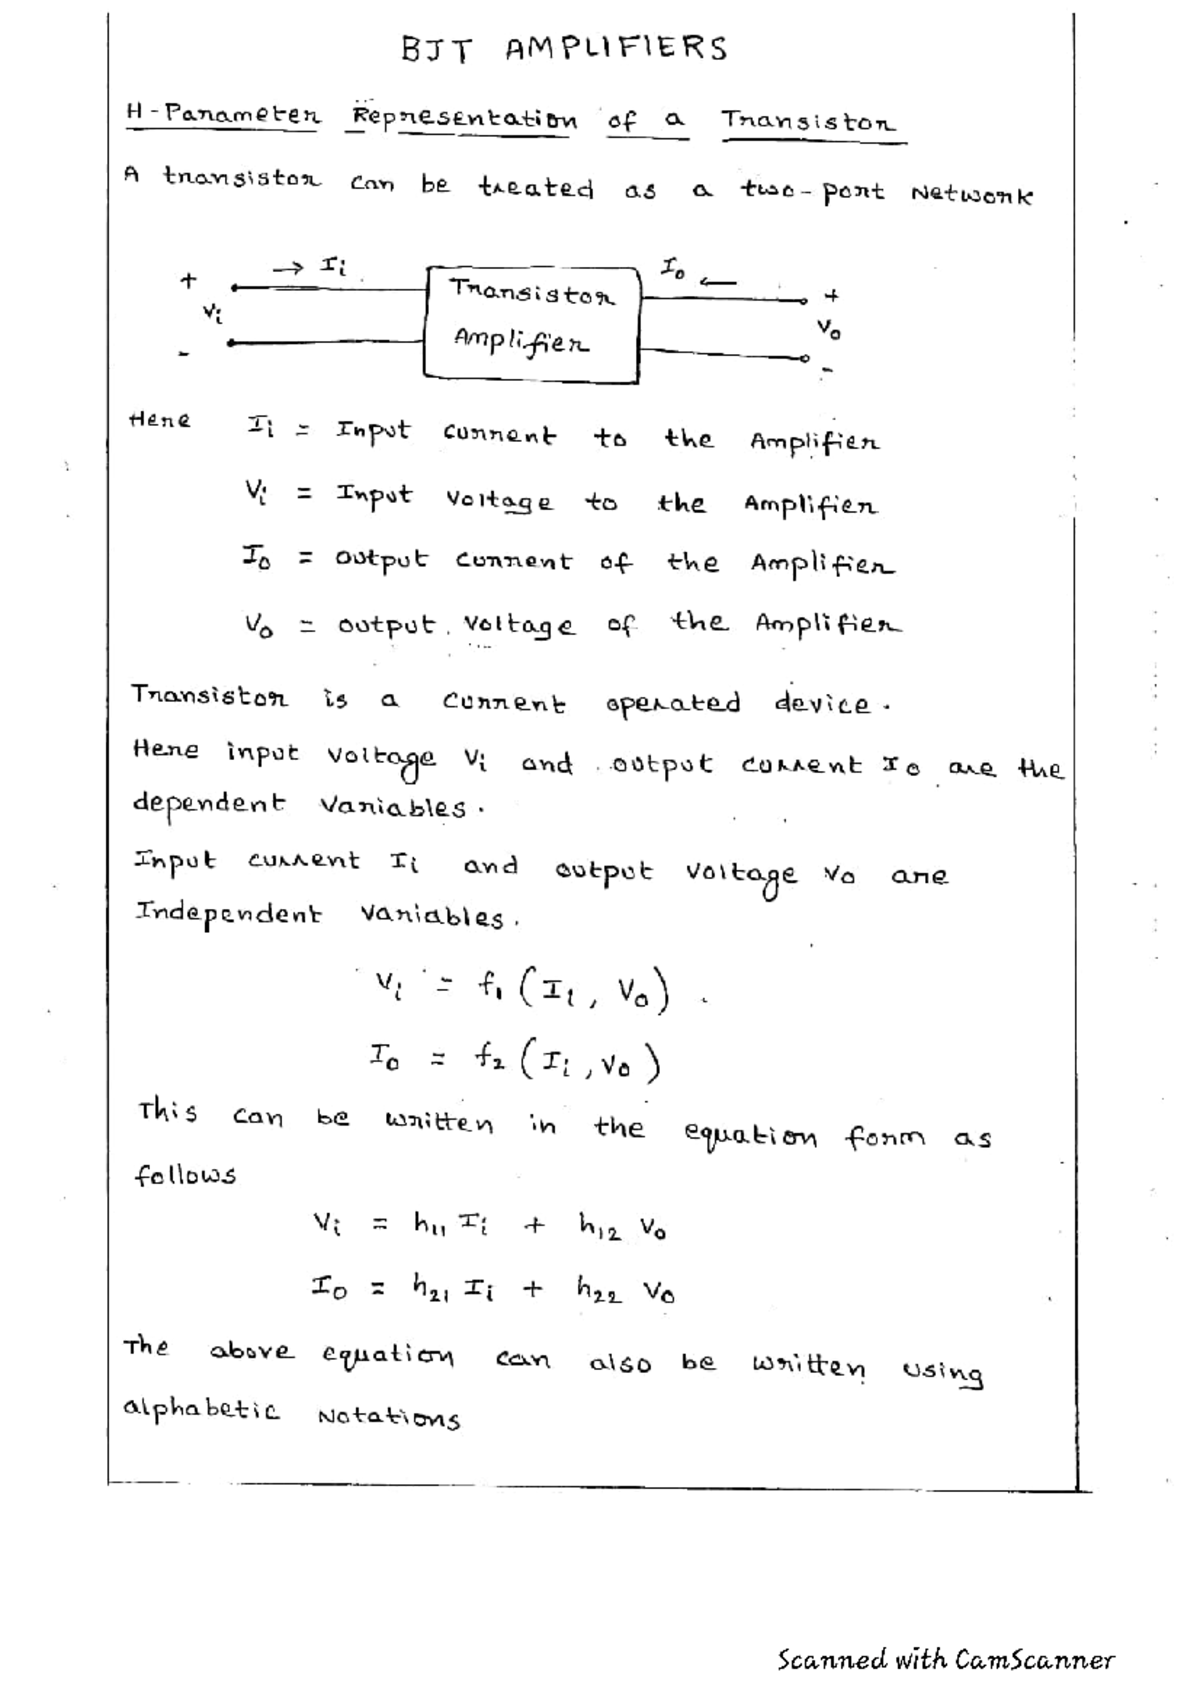 BJT AMPLIFIERS
H-Parameter Representation of a Transistor
A transistor can be treated as a two-port Network
+ → Ii Transistor Io ← +
Vi Amplifier Vo
- -
Here Ii = Input current to the Amplifier
Vi = Input Voltage to the Amplifier
Io = output current of the Amplifier
Vo = output voltage of the Amplifier
Transistor is a current operated device.
Here input voltage Vi and output current Io are the
dependent variables.
Input current Ii and output voltage Vo are
Independent variables.
Vi = f1 (Ii, Vo)
Io = f2 (Ii, Vo)
This can be written in the equation form as
follows
Vi = h11 Ii + h12 Vo
Io = h21 Ii + h22 Vo
The above equation can also be written using
alphabetic Notations
Scanned with CamScanner